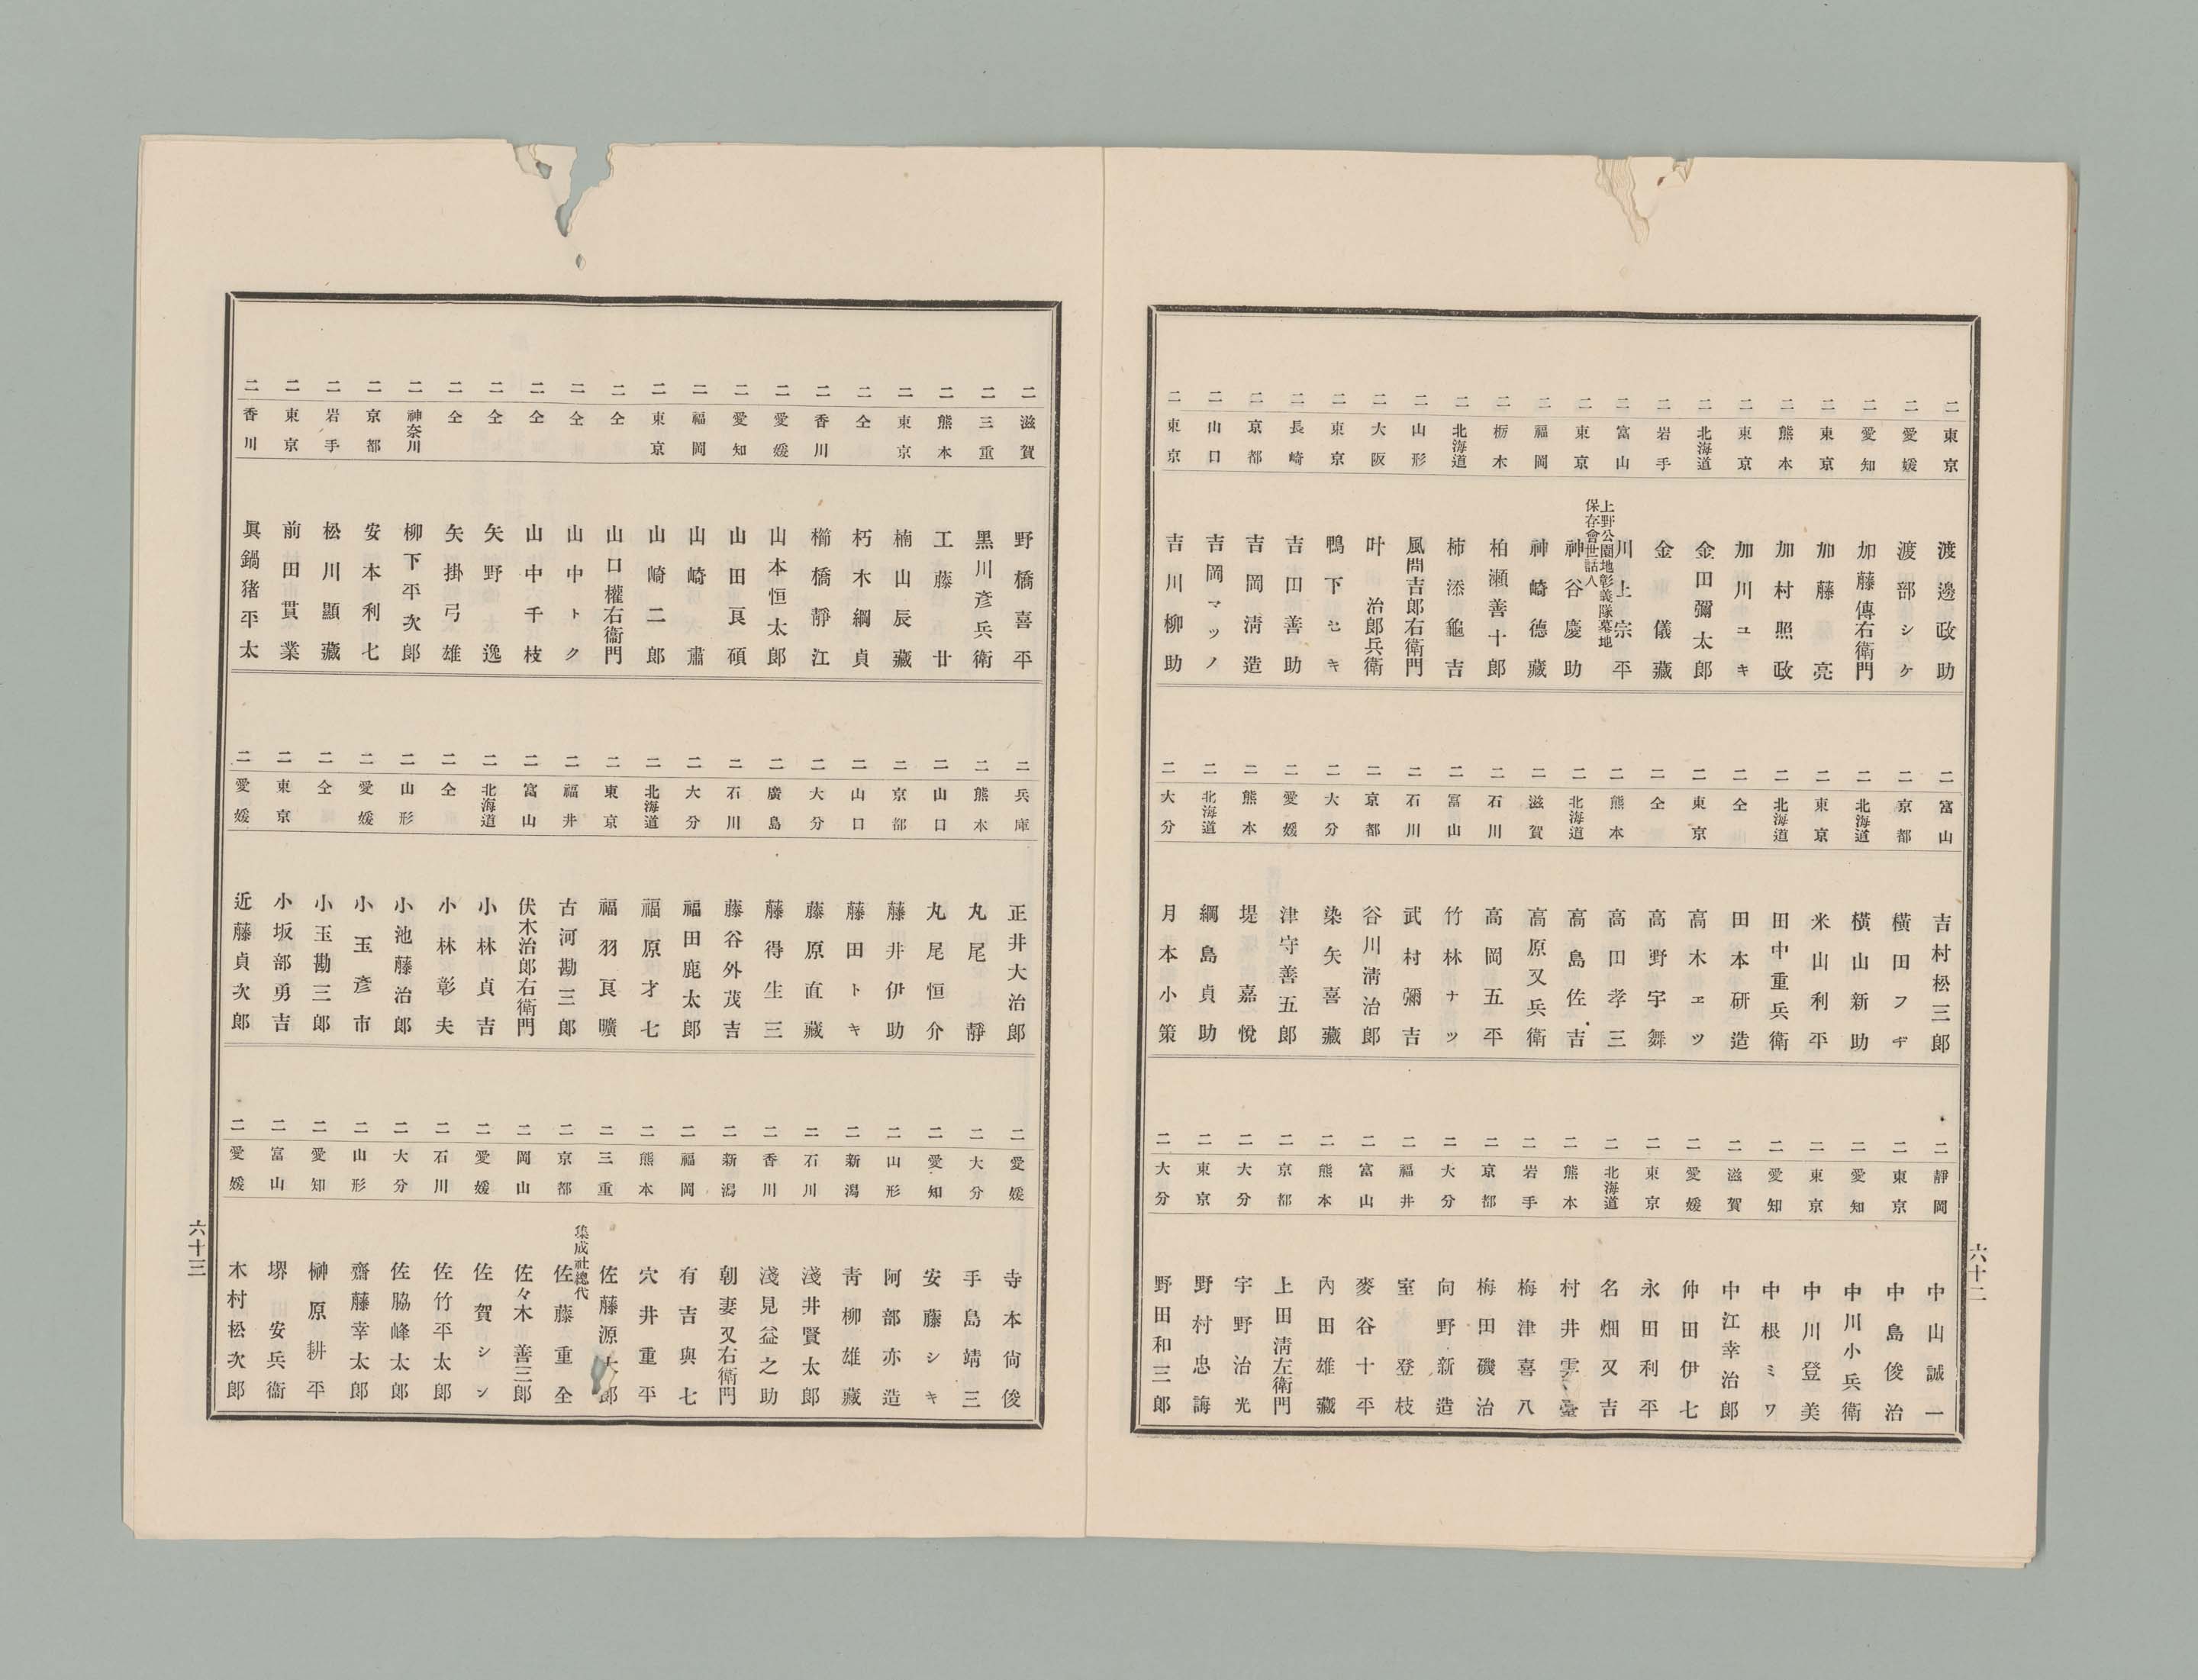 二 東京 渡邊政助
二 愛媛 渡部シケ
二 愛知 加藤傳右衛門
二 東京 加藤亮
二 熊本 加村照政
二 東京 加川ユキ
二 北海道 金田彌太郎
二 岩手 金儀藏
二 富山 川上宗平
二 東京 上野公園地彰義隊墓地保存會世話人 神谷慶助
二 福岡 神崎德藏
二 栃木 柏瀬善十郎
二 北海道 柿添龜吉
二 山形 風間吉郎右衛門
二 大阪 叶治郎兵衛
二 東京 鴨下セキ
二 長崎 吉田善助
二 京都 吉岡淸造
二 山口 吉岡マツノ
二 東京 吉川柳助
二 富山 吉村松三郎
二 京都 橫田フデ
二 北海道 橫山新助
二 東京 米山利平
二 北海道 田中重兵衛
二 仝 田本研造
二 東京 高木ヱツ
二 仝 高野宇舞
二 熊本 高田孝三
二 北海道 高島佐吉
二 滋賀 高原又兵衛
二 石川 高岡五平
二 富山 竹林ナツ
二 石川 武村彌吉
二 京都 谷川淸治郎
二 大分 染矢喜藏
二 愛媛 津守善五郎
二 熊本 堤嘉悅
二 北海道 綱島貞助
二 大分 月本小策
二 靜岡 中山誠一
二 東京 中島俊治
二 愛知 中川小兵衛
二 東京 中川登美
二 愛知 中根ミワ
二 滋賀 中江幸治郎
二 愛媛 仲田伊七
二 東京 永田利平
二 北海道 名畑又吉
二 熊本 村井雲臺
二 岩手 梅津喜八
二 京都 梅田磯治
二 大分 向野新造
二 福井 室登枝
二 富山 麥谷十平
二 熊本 內田雄藏
二 京都 上田淸左衛門
二 大分 宇野治光
二 東京 野村忠誨
二 大分 野田和三郎
六十二
二 滋賀 野橋喜平
二 三重 黑川彥兵衛
二 熊本 工藤廿
二 東京 楠山辰藏
二 仝 朽木綱貞
二 香川 櫛橋靜江
二 愛媛 山本恒太郎
二 愛知 山田良碩
二 福岡 山崎肅
二 東京 山崎二郎
二 仝 山口權右衞門
二 仝 山中トク
二 仝 山中千枝
二 仝 矢野逸
二 仝 矢掛弓雄
二 神奈川 柳下平次郎
二 京都 安本利七
二 岩手 松川顯藏
二 東京 前田貫業
二 香川 眞鍋猪平太
二 兵庫 正井大治郎
二 熊本 丸尾靜
二 山口 丸尾恒介
二 京都 藤井伊助
二 山口 藤田トキ
二 大分 藤原直藏
二 廣島 藤得生三
二 石川 藤谷外茂吉
二 大分 福田鹿太郎
二 北海道 福原才七
二 東京 福羽良曠
二 福井 古河勘三郎
二 富山 伏木治郎右衛門
二 北海道 小林貞吉
二 仝 小林彰夫
二 山形 小池藤治郎
二 愛媛 小玉彥市
二 仝 小玉勘三郎
二 東京 小坂部勇吉
二 愛媛 近藤貞次郎
二 愛媛 寺本尙俊
二 大分 手島靖三
二 愛知 安藤シキ
二 山形 阿部亦造
二 新潟 靑柳雄藏
二 石川 淺井賢太郎
二 香川 淺見益之助
二 新潟 朝妻又右衛門
二 福岡 有吉與七
二 熊本 穴井重平
二 三重 佐藤源太郎
二 京都 集成社總代 佐藤重全
二 岡山 佐々木善三郎
二 愛媛 佐賀シン
二 石川 佐竹平太郎
二 大分 佐脇峰太郎
二 山形 齋藤幸太郎
二 愛知 榊原耕平
二 富山 堺安兵衞
二 愛媛 木村松次郎
六十三